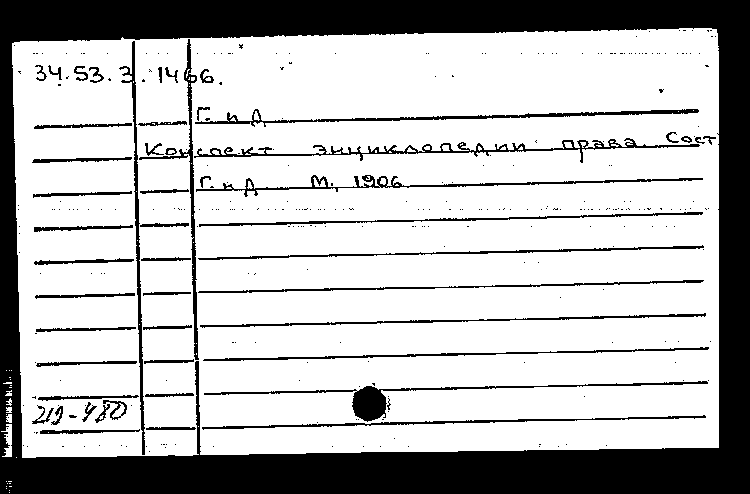 34.53.3.1466.
Г. и Д
Конспект энциклопедии права Сост
Г. и Д М., 1906
219-480